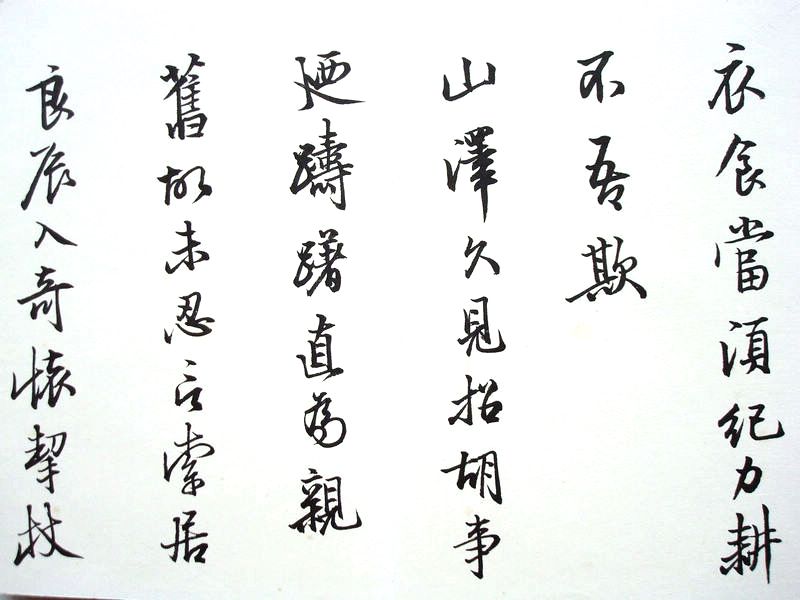 衣食當須紀力耕
不吾欺
山澤久見招胡事
迺躊躇直為親
舊故未忍言索居
良辰入奇懷挈杖